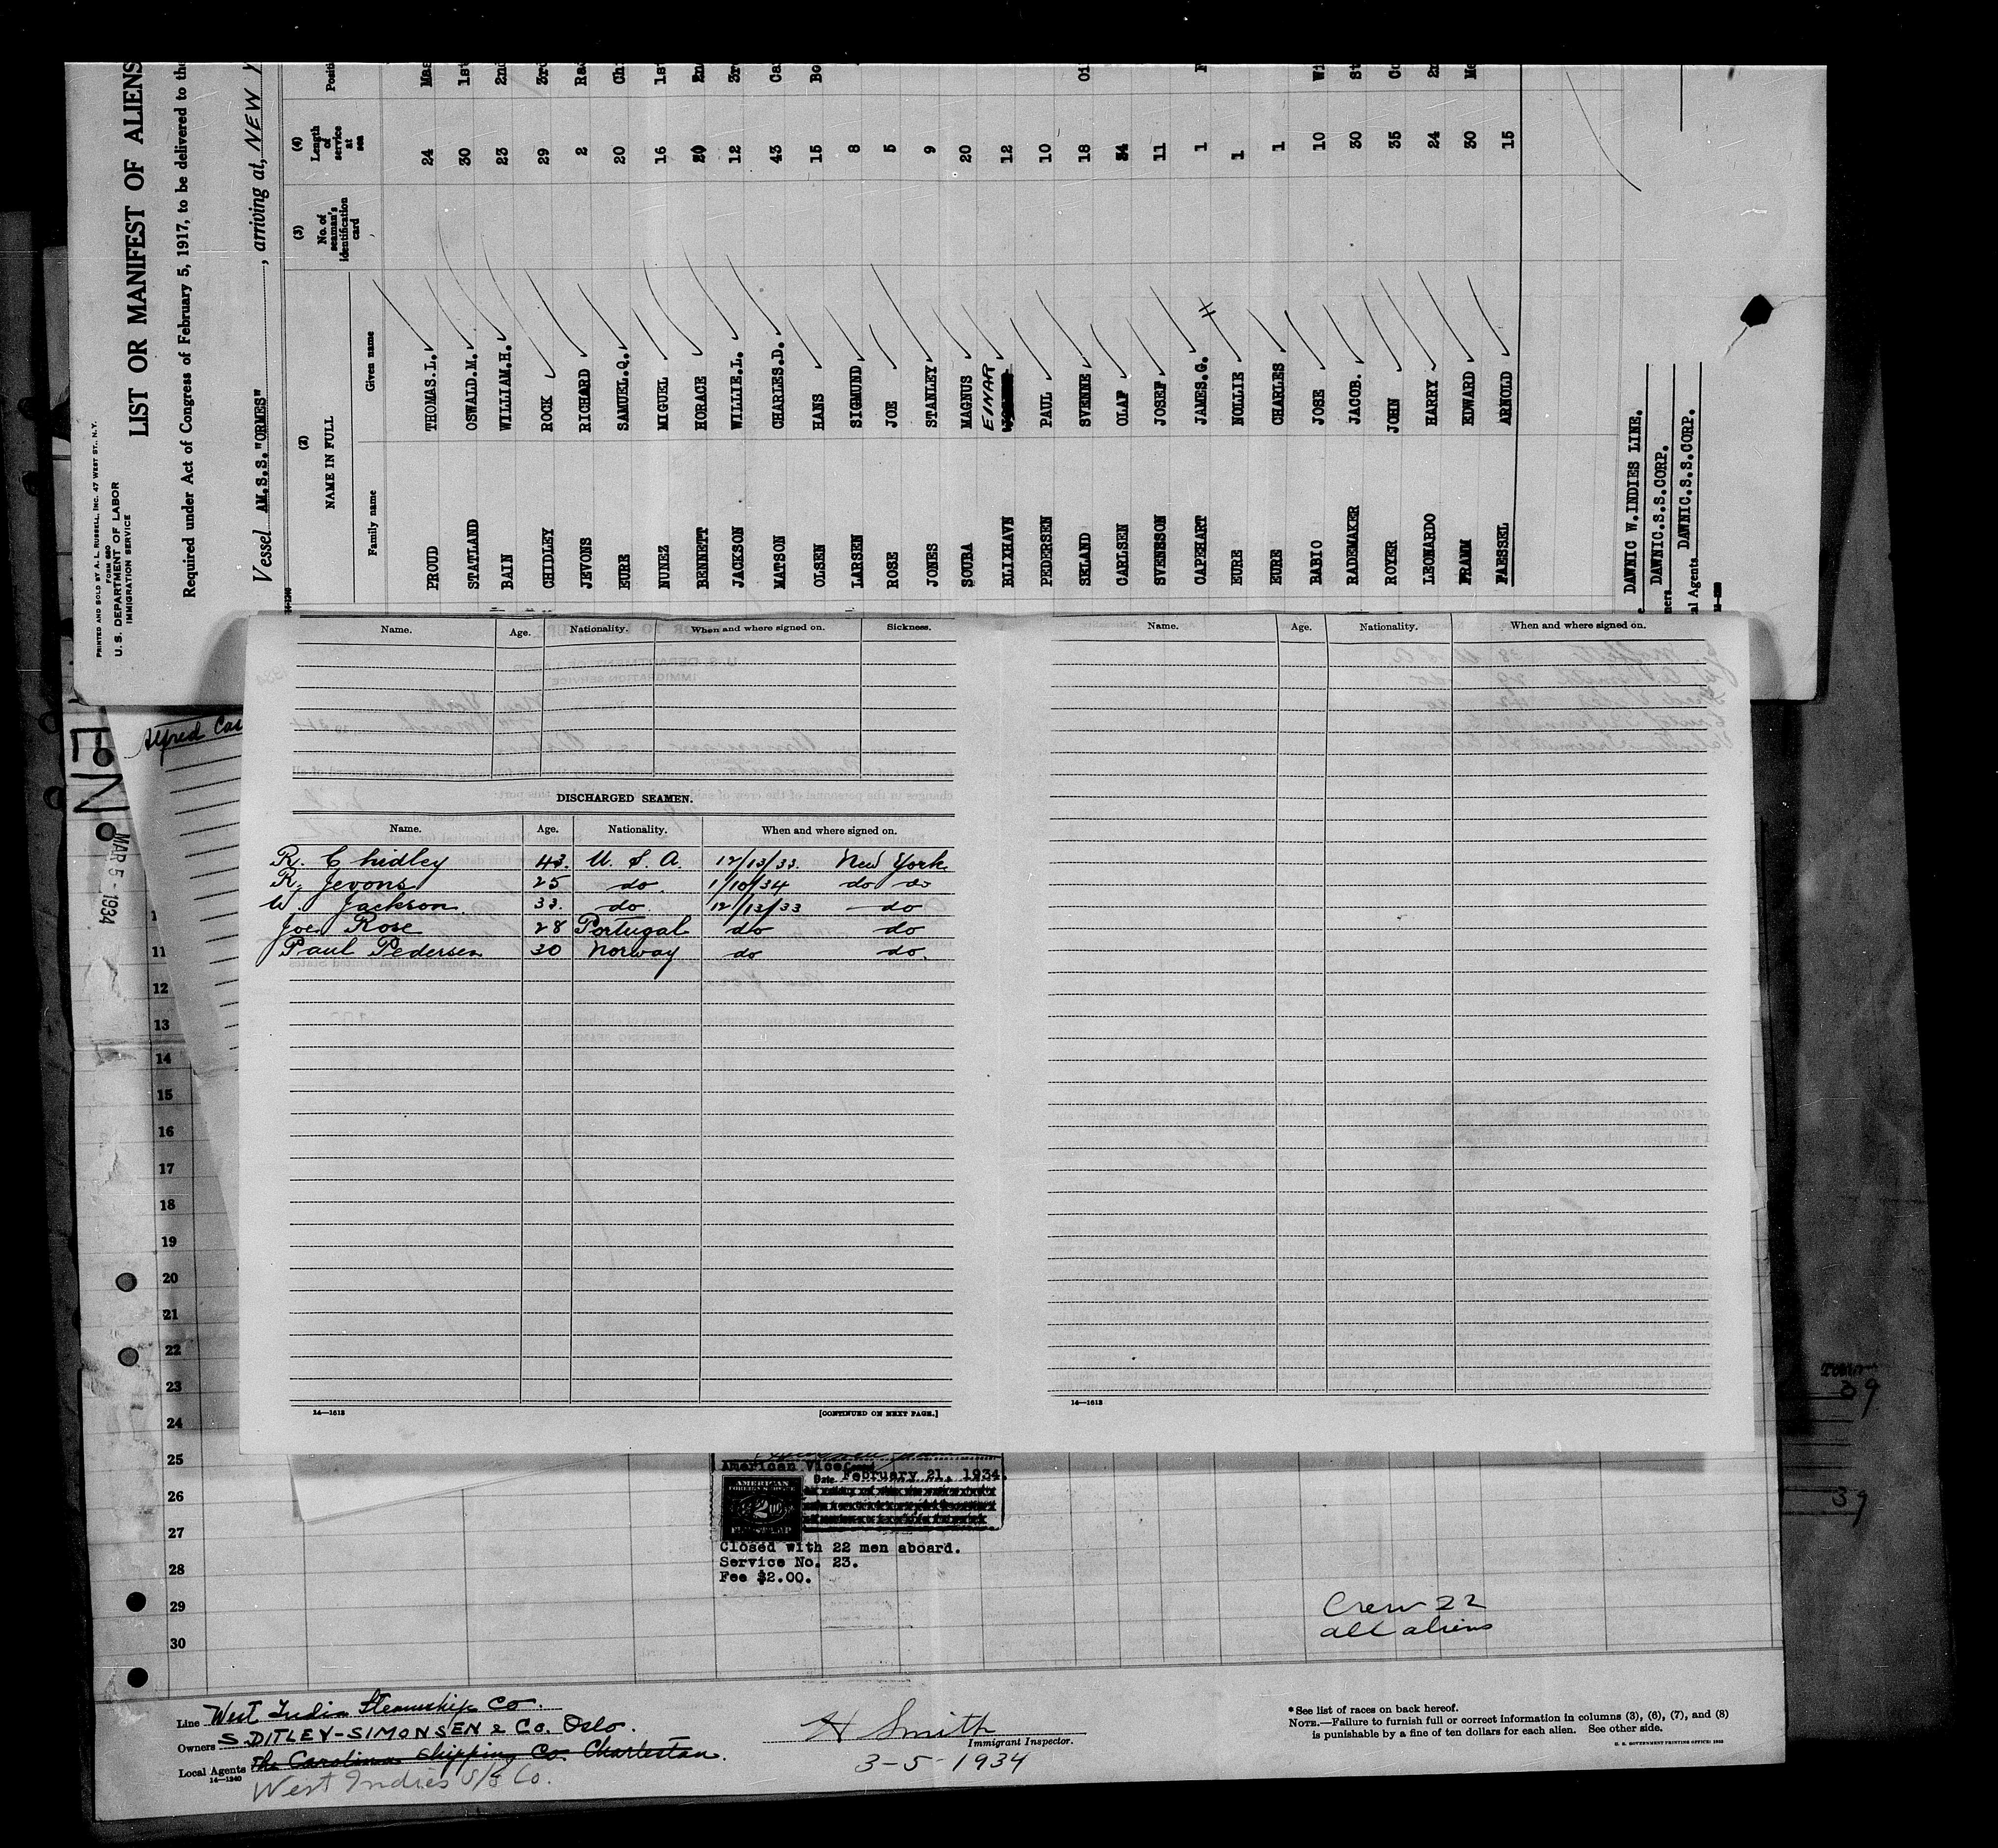 PRINTED AND SOLD BY A. L. RUSSELL, INC. 47 WEST ST., N.Y.
FORM 680
U. S. DEPARTMENT OF LABOR
IMMIGRATION SERVICE
LIST OR MANIFEST OF ALIENS
Required under Act of Congress of February 5, 1917, to be delivered to the
Vessel AM.S.S."ORMES", arriving at, NEW Y
(2) (3) (4)
NAME IN FULL No. of seaman's identification card Length of service at sea
Family name Given name
PROUD THOMAS.L. 24 Mas
STATLAND OSWALD.M. 30 1st
BAIN WILLIAM.H. 23 2nd
CHIDLEY ROCK 29 3rd
JEVONS RICHARD 2 Ra
EURE SAMUEL.Q. 20 Ch
NUNEZ MIGUEL 16 1st
BENNETT HORACE 20 2nd
JACKSON WILLIE.L. 12 3r
MATSON CHARLES.D. 43 Ca
OLSEN HANS 15 Bo
LARSEN SIGMUND 8
ROSE JOE 5
JONES STANLEY 9
SOUBA MAGNUS 20
BLIXHAVN EINAR 12
PEDERSEN PAUL 10
SELAND SVENNE 18 Oi
CARLSEN OLAF 34
SVENSSON JOSEF 11
CAPEHART JAMES.G. 1 F
EURE NOLLIE 1
EURE CHARLES 1
BABIO JOSE 10 Wi
RADEMAKER JACOB. 30 St
ROYER JOHN 35 Co
LEONARDO HARRY 24 2n
FRAMM EDWARD 30 Me
FAESSEL ARNOLD 15
DAWNIC W.INDIES LINE.
DAWNIC.S.S.CORP.
al Agents DAWNIC.S.S.CORP.
Name. Age. Nationality. When and where signed on. Sickness.
Name. Age. Nationality. When and where signed on.
DISCHARGED SEAMEN.
Name. Age. Nationality. When and where signed on.
R. Chidley 43. U. S. A. 12/13/33. New York
R. Jevons 25 do. 1/10/34 do do
W. Jackson. 33. do. 12/13/33 do
Joe Rose 28 Portugal do do
Paul Pedersen 30 Norway do do.
14—1613 [CONTINUED ON NEXT PAGE.]
14—1613
Alfred Cas
EN
MAR 5 - 1934
11
12
13
14
15
16
17
18
19
20
21
22
23
24
25
26
27
28
29
30
39
39
American Vice
Date February 21, 1934.
Closed with 22 men aboard.
Service No. 23.
Fee $2.00.
Crew 22
all aliens
Line West India Steamship Co.
Owners S. DITLEV-SIMONSEN & Co. Oslo.
Local Agents The Carolina Shipping Co. Charleston.
14—1240
West Indies S/S Co.
H Smith
Immigrant Inspector.
3-5-1934
*See list of races on back hereof.
NOTE.—Failure to furnish full or correct information in columns (3), (6), (7), and (8)
is punishable by a fine of ten dollars for each alien. See other side.
U. S. GOVERNMENT PRINTING OFFICE: 1933